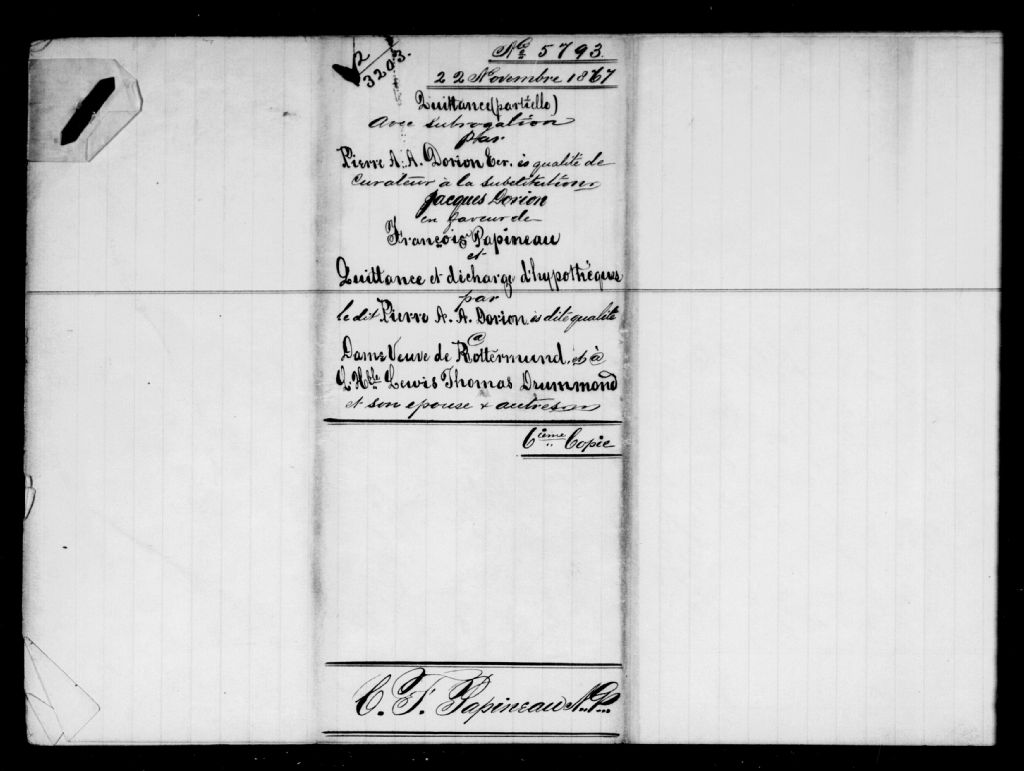 2
3203.
No. 5793
22 Novembre 1867
Quittance (partielle)
Avec subrogation
par
Pierre A. A. Dorion Ecr. ès qualité de
Curateur à la substitution
Jacques Dorion
en faveur de
François Papineau
et
Quittance et décharge d'hypothéques
par
le dit Pierre A. A. Dorion ès dite qualité
à
Dame Veuve de Rottermund, et à
L'Hble Lewis Thomas Drummond
et son epouse & autres
6ième Copie
C. F. Papineau N.P.